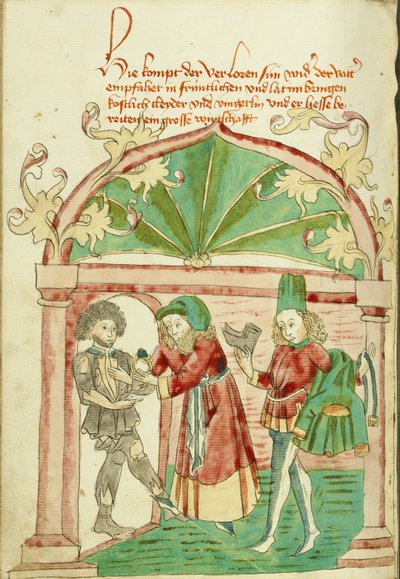 Hie kompt der verloren sun wider der vatter
empfahet in früntlichen und lat im bringen
kostlich cleyder und vingerlin und er hesse be-
reiten ein grosse wirtschafft